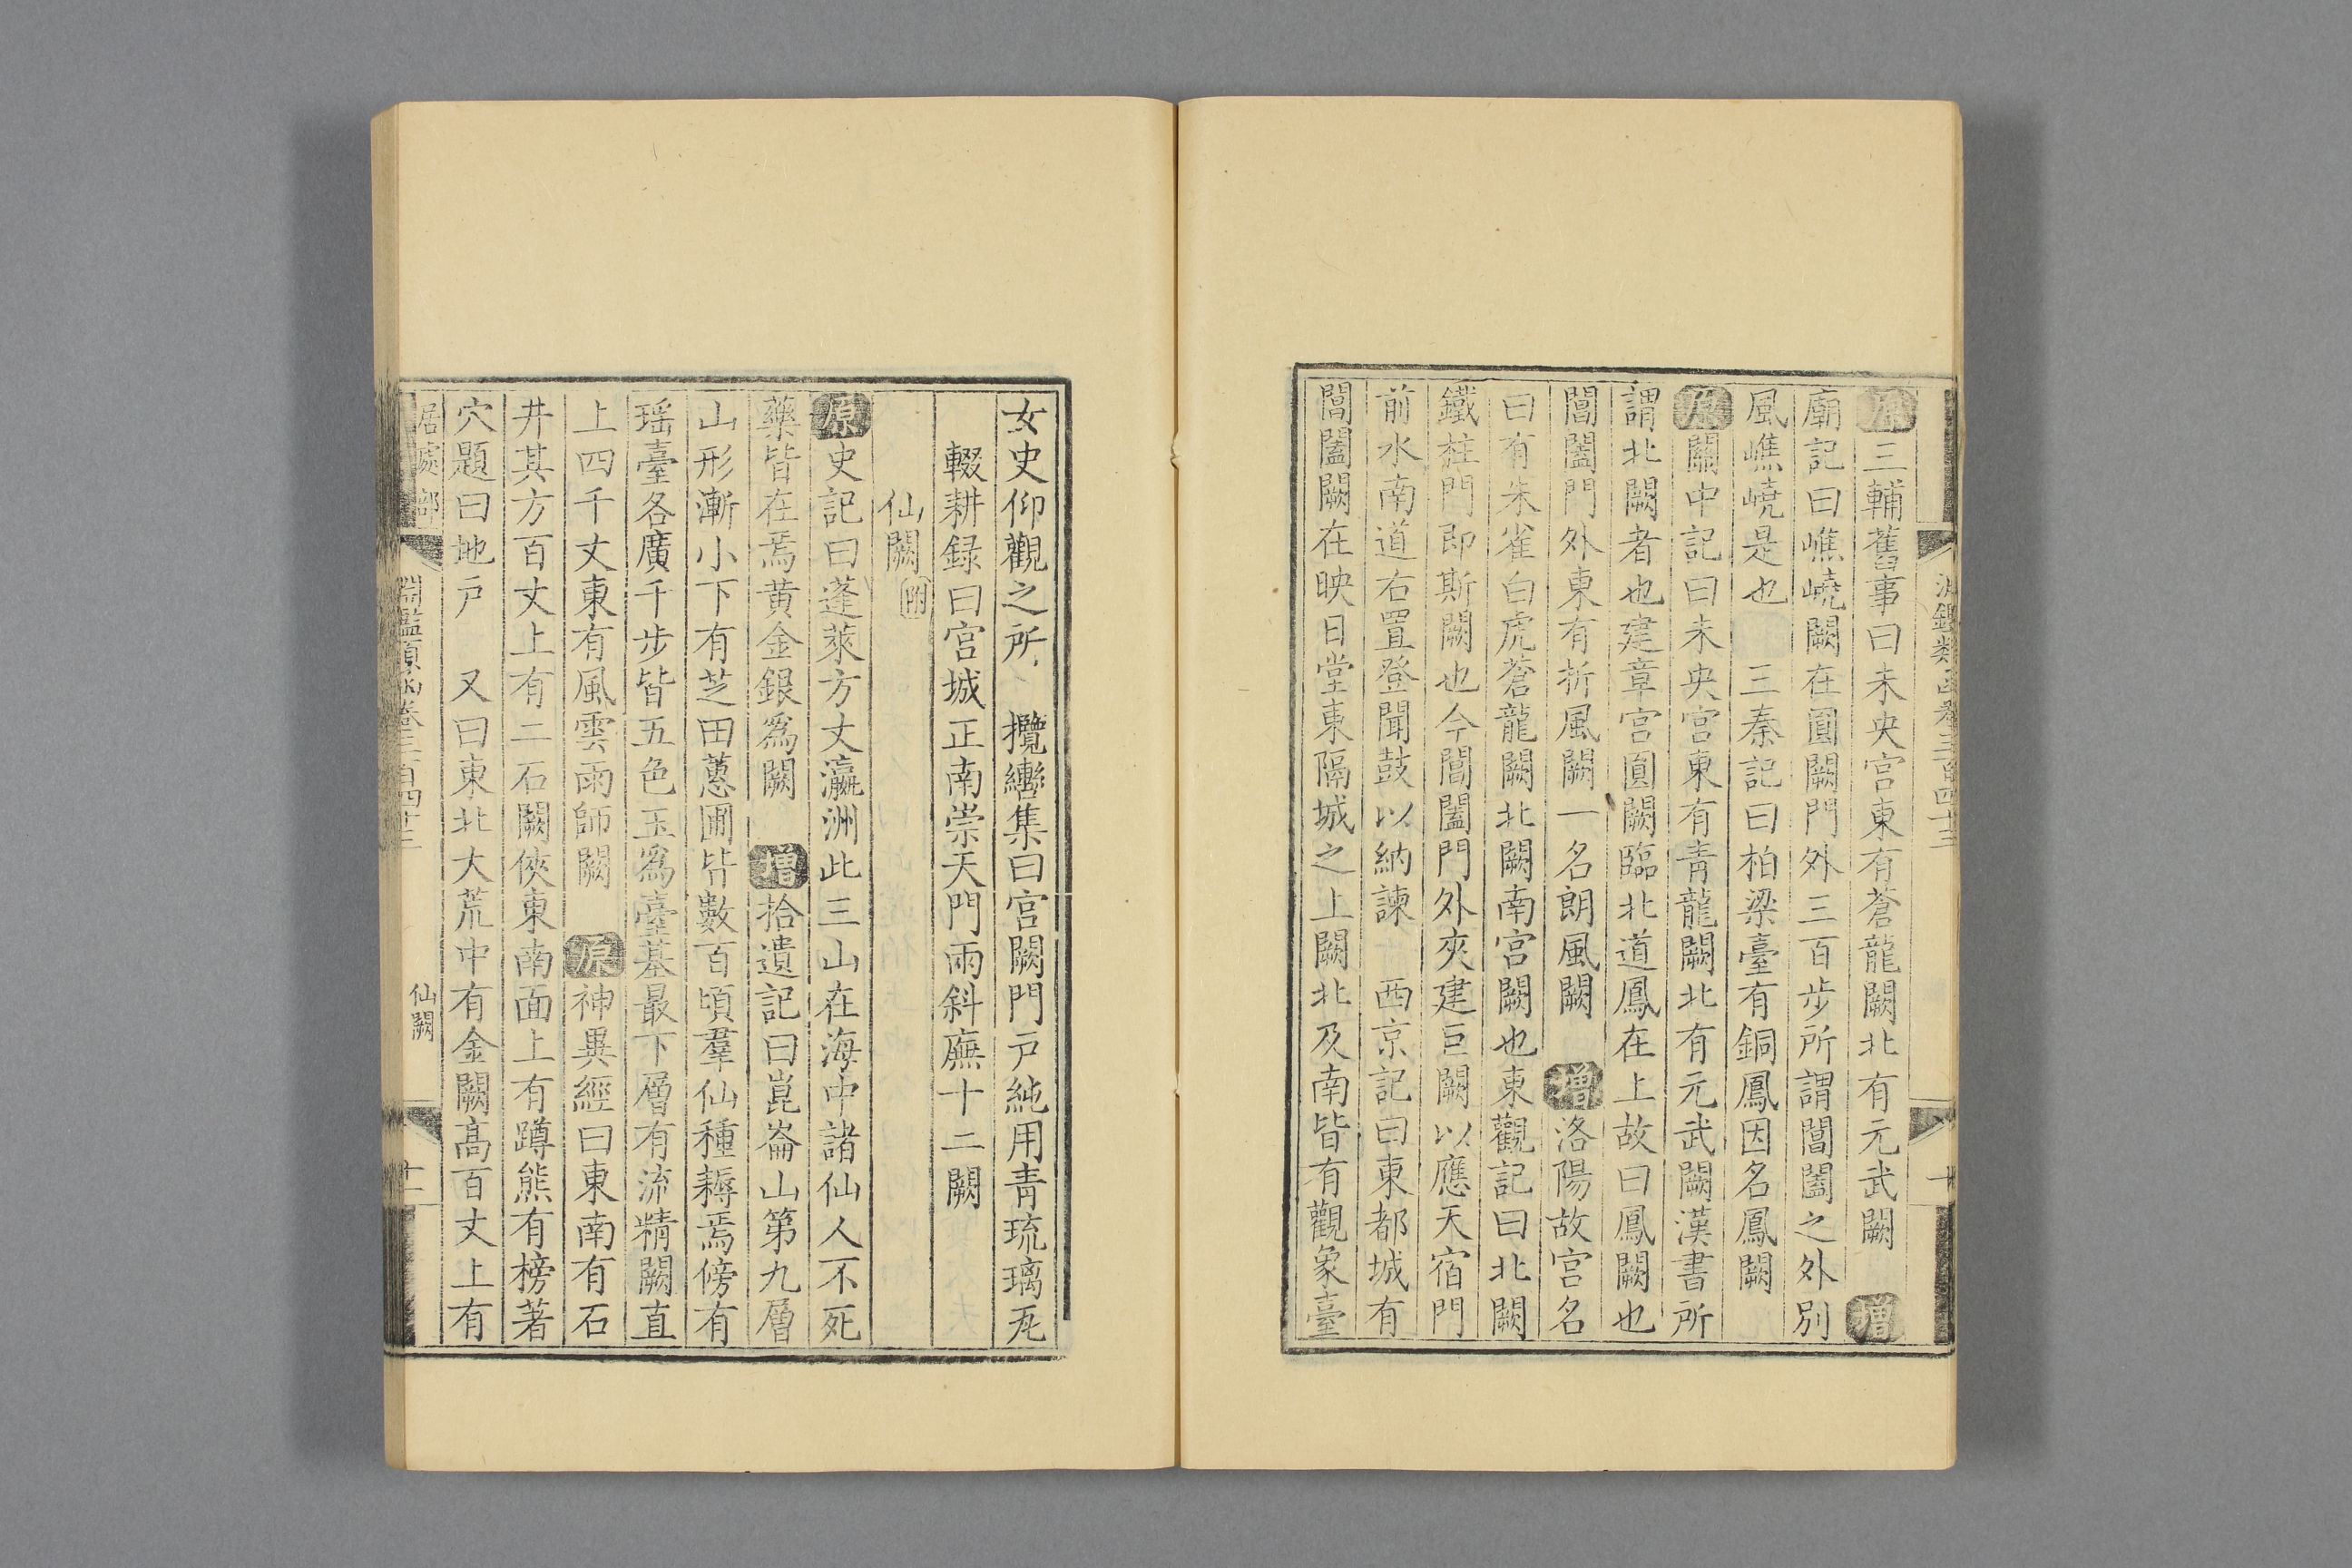 淵鑑類函卷三百四十三
十
原三輔舊事曰未央宮東有蒼龍闕北有元武闕 增
廟記曰嶕嶢闕在圓闕門外三百步所謂閶闔之外別
風嶕嶢是也 三秦記曰柏梁臺有銅鳳因名鳳闕
原關中記曰未央宮東有青龍闕北有元武闕漢書所
謂北闕者也建章宮圓闕臨北道鳳在上故曰鳳闕也
閶闔門外東有折風闕一名朗風闕 增洛陽故宮名
曰有朱雀白虎蒼龍闕北闕南宮闕也東觀記曰北闕
鐵柱門即斯闕也今閶闔門外夾建巨闕以應天宿門
前水南道右置登聞鼓以納諫 西京記曰東都城有
閶闔闕在映日堂東隔城之上闕北及南皆有觀象臺
女史仰觀之所 攬轡集曰宮闕門戶純用青琉璃瓦
輟耕録曰宮城正南崇天門兩斜廡十二闕
仙闕附
原史記曰蓬萊方丈瀛洲此三山在海中諸仙人不死
藥皆在焉黄金銀爲闕 增拾遺記曰崑崙山第九層
山形漸小下有芝田蕙圃皆數百頃羣仙種耨焉傍有
瑶臺各廣千步皆五色玉爲臺基最下層有流精闕直
上四千丈東有風雲雨師闕 原神異經曰東南有石
井其方百丈上有二石闕俠東南面上有蹲熊有榜著
穴題曰地戸 又曰東北大荒中有金闕高百丈上有
居處部
淵鑑類函卷三百四十三
仙闕
十一